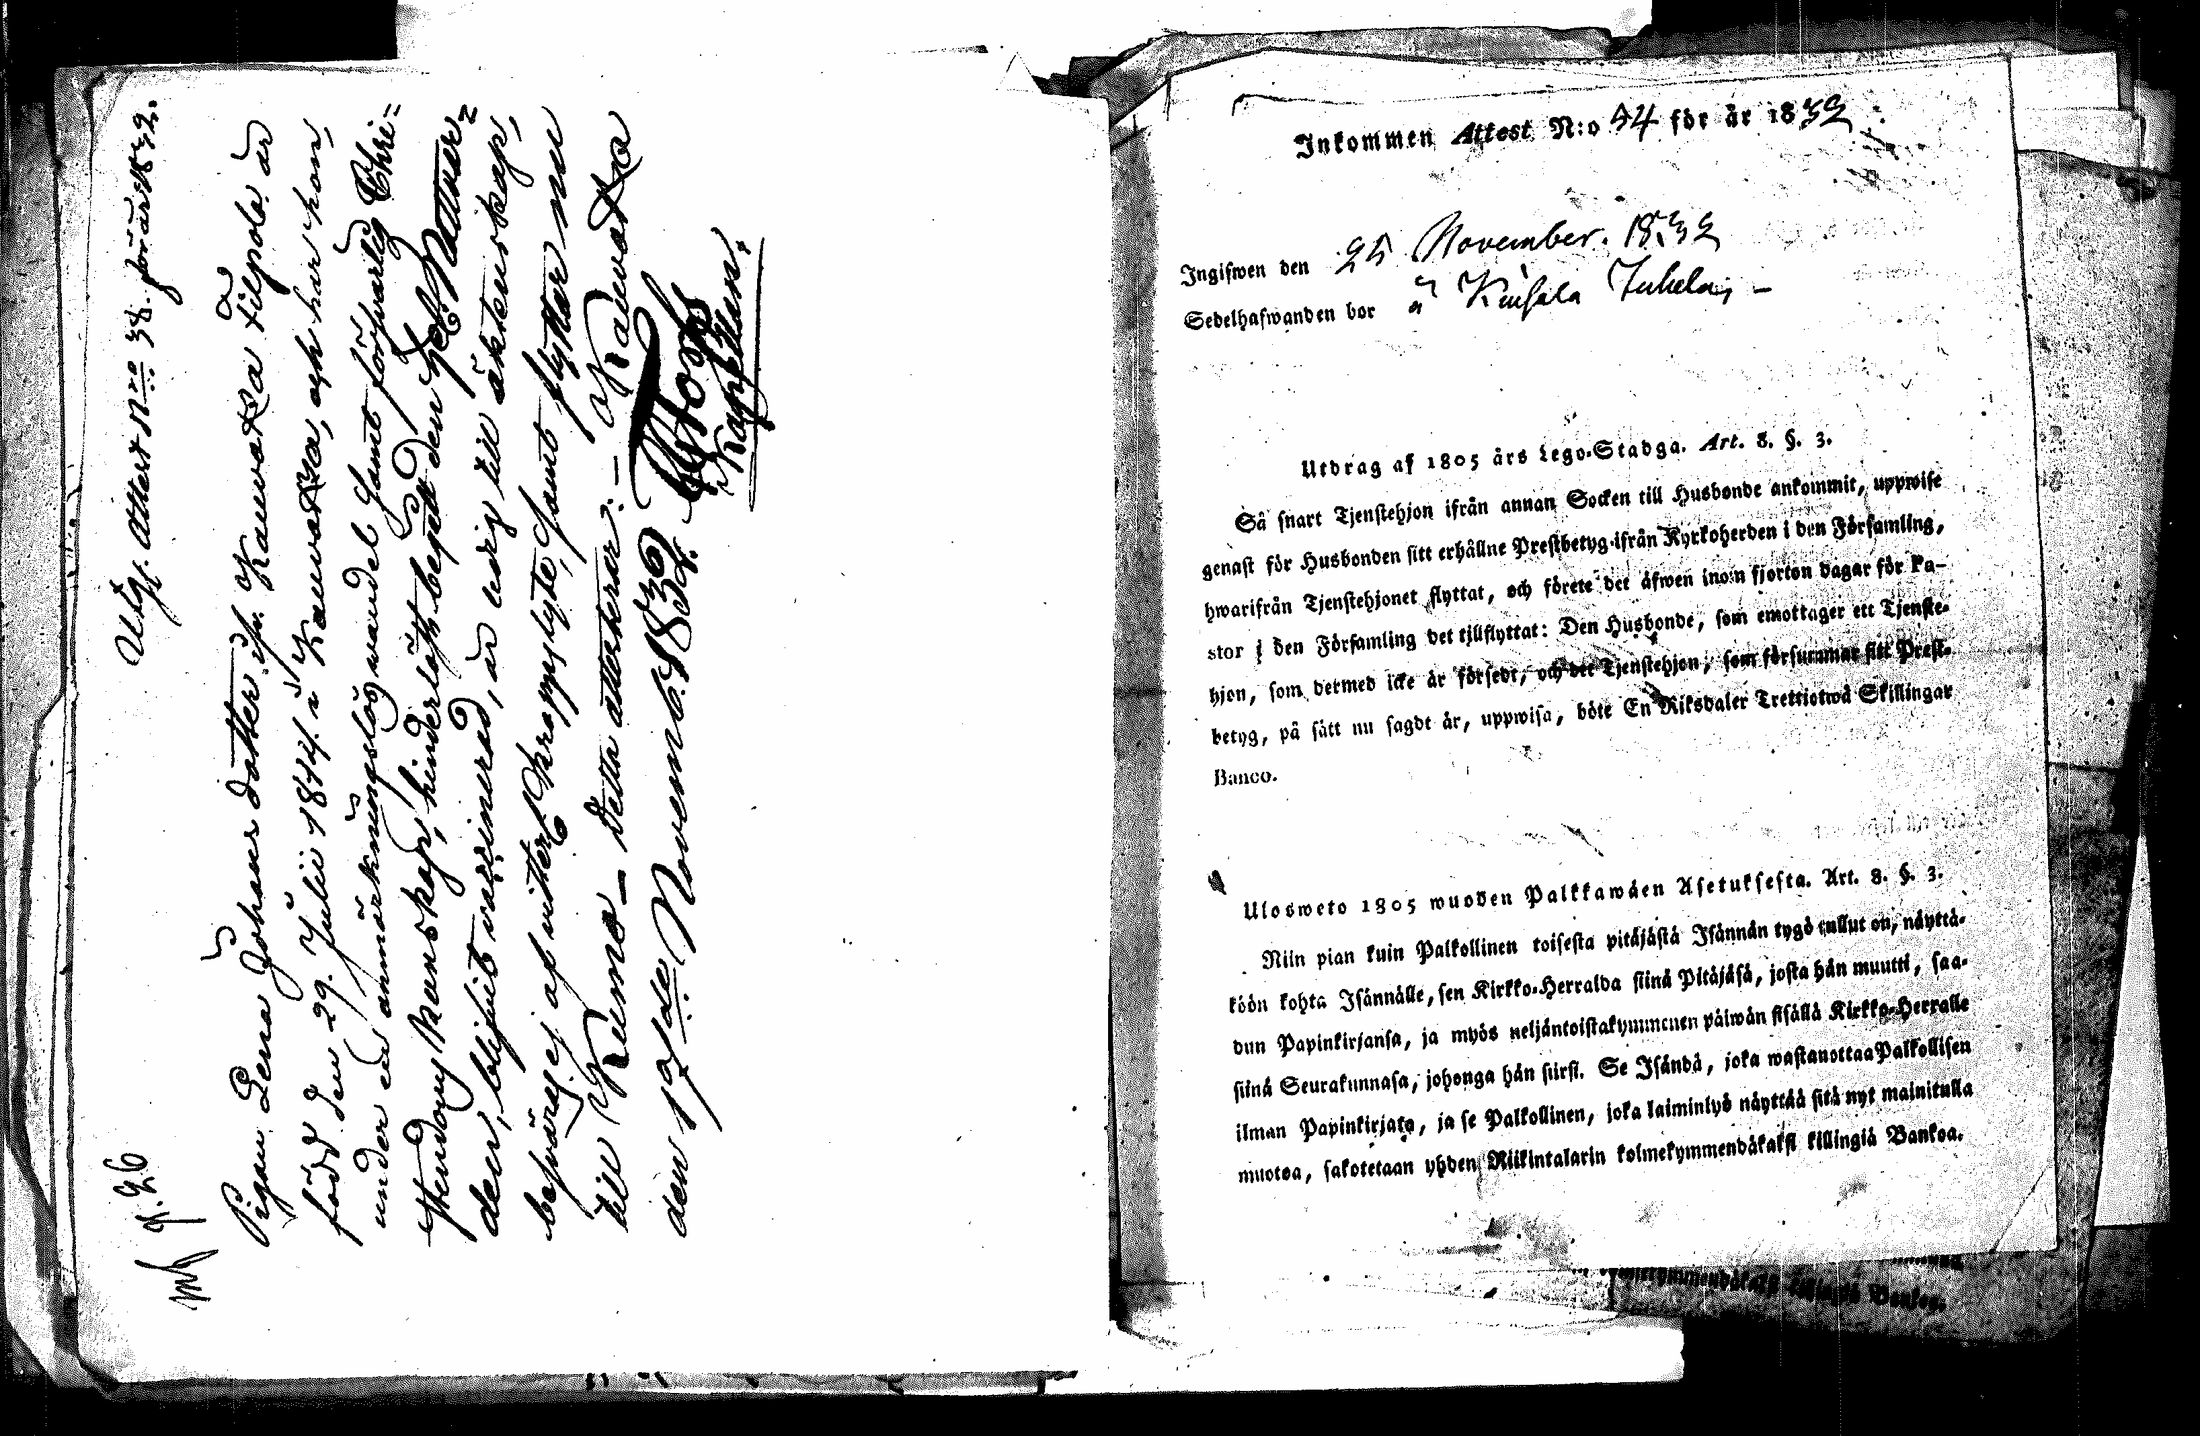 Utg. Attest N:ro 38. för år 1832.
p. 26
Pigan Lena Johans dotter ifr. Kauvatsa Filpola är
född den 29. Julii 1814. i Kauvatsa, och har hon,
under en anmärkningslös vandel samt försvarlig Chri=
stendoms kunskap, hinderlöst begått den H. H. Nattvar=
den, blifvit vaccinerad, är ledig till äktenskap,
besväras ej af vitterl. kroppslyte, samt flyttar nu
till Kiumo – Detta attesterar: – Kauvatsa
den 19:de Novemb. 1832.
Kapellan.
Inkommen Attest N:o 44 för år 1832
Ingifwen den 25 November. 1832
Sedelhafwanden bor å Juhela, –
Utdrag af 1805 års Lego-Stadga. Art. 8. §. 3.
Så snart Tjenstehjon ifrån annan Socken till Husbonde ankommit, uppwise
genast för Husbonden sitt erhållne Prestbetyg ifrån Kyrkoherden i den Församling,
hwarifrån Tjenstehjonet flyttat, och förete det äfwen inom fjorton dagar för Pa-
stor i den Församling det tillflyttat: Den Husbonde, som emottager ett Tjenste-
hjon, som dermed icke är försedt, och det Tjenstehjon, som försummar sitt Prest-
betyg, på sätt nu sagdt är, uppwisa, böte En Riksdaler Trettiotwå Skillingar
Banco.
Ulosweto 1805 wuoden Palkkawäen Asetuksesta. Art. 8. §. 3.
Niin pian kuin Palkollinen toisesta pitäjästä Isännän tygö tullut on, näyttä-
köön kohta Isännälle, sen Kirkko-Herralda siinä Pitäjäsä, josta hän muutti, saa-
dun Papinkirjansa, ja myös neljäntoistakymmenen päiwän sisällä Kirkko-Herralle
siinä Seurakunnasa, johonga hän siirsi. Se Isändä, joka wastanottaa Palkollisen
ilman Papinkirjata, ja se Palkollinen, joka laiminlyö näyttää sitä nyt mainitulla
muotoa, sakotetaan yhden Riikintalarin kolmekymmendäkaksi killingiä Bankoa.